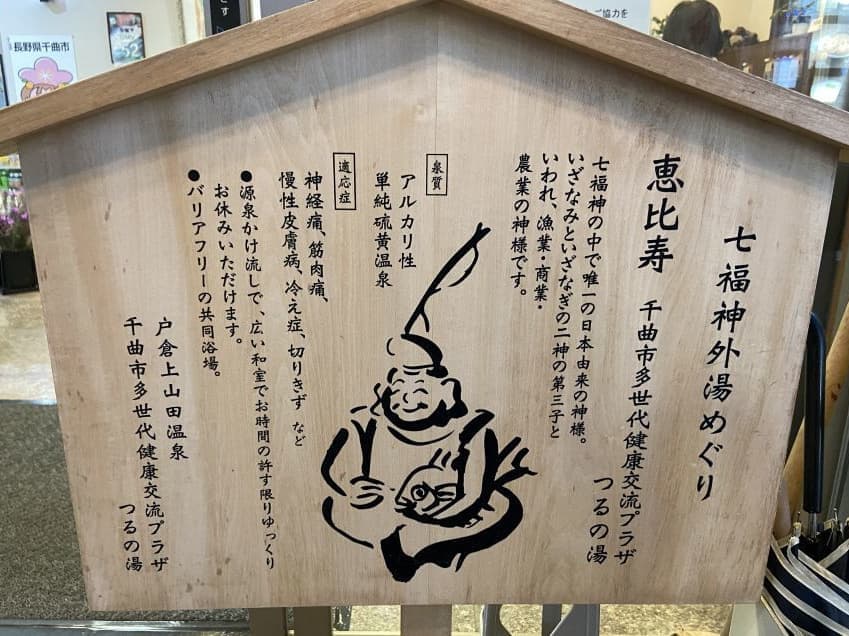 七福神外湯めぐり
恵比寿
千曲市多世代健康交流プラザ
つるの湯
七福神の中で唯一の日本由来の神様。
いざなみといざなぎの二神の第三子と
いわれ、漁業・商業・
農業の神様です。
泉質
アルカリ性
単純硫黄温泉
適応症
神経痛、筋肉痛、
慢性皮膚病、冷え症、切りきず など
●源泉かけ流しで、広い和室でお時間の許す限りゆっくり
お休みいただけます。
●バリアフリーの共同浴場。
戸倉上山田温泉
千曲市多世代健康交流プラザ
つるの湯
長野県千曲市
52
ご協力を